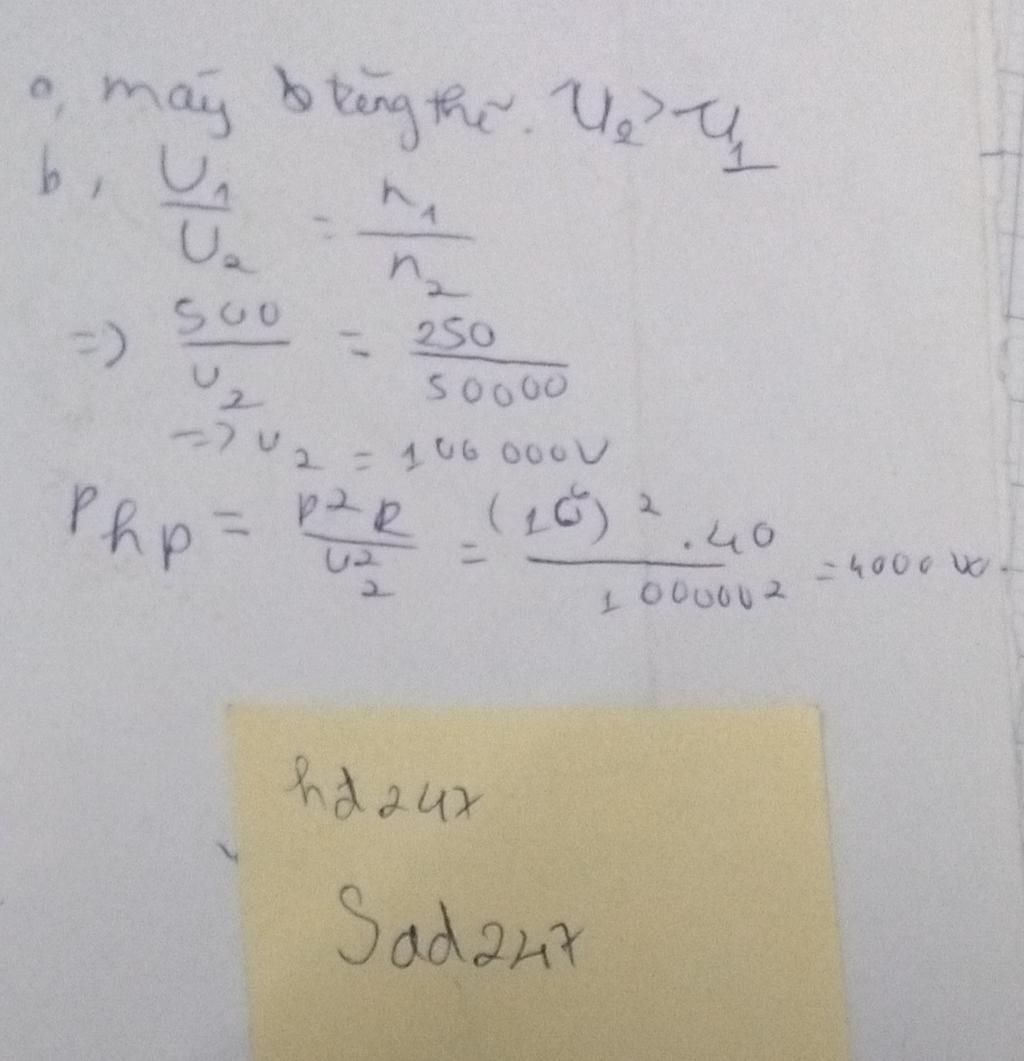 a, máy b tăng thế. U₂ > U₁
b, U₁/U₂ = n₁/n₂
=> 500/U₂ = 250/50000
=> U₂ = 100 000V
Php = P²R/U₂² = (10⁶)².40/100000² = 4000 W.
hd247
Sad247